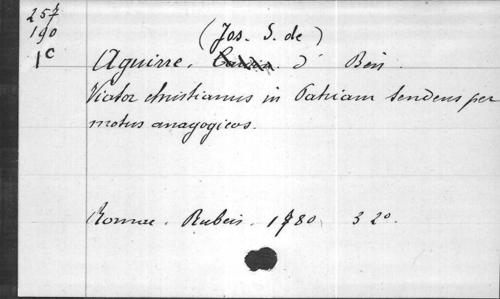 257
190
1c
(Jos. S. de)
Aguirre. d' Ben.
Viator christianus in Patriam tendens per
motus anagogicos.
Romae. Rubeis. 1780 3 20.